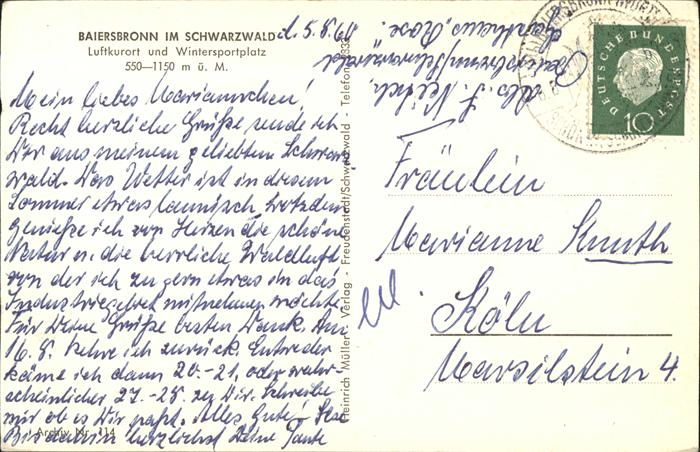 BAIERSBRONN IM SCHWARZWALD
Luftkurort und Wintersportplatz
550—1150 m ü. M.
d. 5.8.60
Mein liebes Mariannchen!
Recht herzliche Grüße sende ich
Dir aus meinem geliebten Schwarz
wald. Das Wetter ist in diesem
Sommer etwas launisch, trotzdem
genieße ich von Herzen die schöne
Natur u. die herrliche Waldluft
von der ich zu gern etwas in das
Industriegebiet mitnehmen möchte.
Für Deine Grüße besten Dank. Am
16.8. kehre ich zurück. Entweder
käme ich dann 20.-21. oder wahr-
scheinlicher 27.-28. zu Dir. Schreibe
mir ob es Dir paßt. Alles Gute!
Bis dahin herzlichst Deine Tante
Ilse
Archiv Nr. 114
Heinrich Müller Verlag - Freudenstadt/Schwarzwald - Telefon
Abs. J.
Baiersbronn/Schwarzwald
"Rose"
DEUTSCHE BUNDESPOST
10
Fräulein
Marianne
Köln
Marsilstein 4.